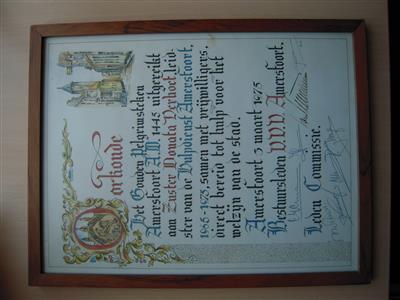 Oorkonde
Het Gouden Pelgrimsteken
Amersfoort A.D. 1445 uitgereikt
aan Zuster Donata Verhoef leid-
ster van de Hulpdienst Amersfoort,
1965-1975, samen met vrijwilligers,
direct bereid tot hulp voor het
welzijn van de stad.
Amersfoort 3 maart 1975
Bestuursleden V.V.V. Amersfoort.
Leden Commissie.